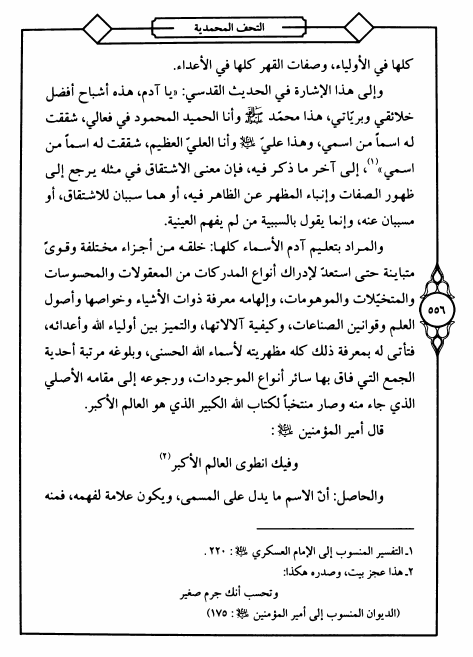 التحف المحمدية
كلها في الأولياء، وصفات القهر كلها في الأعداء.
وإلى هذا الإشارة في الحديث القدسي: «يا آدم، هذه أشباح أفضل
خلائقي وبريّاتي، هذا محمّد ﷺ وأنا الحميد المحمود في فعالي، شققت
له اسماً من اسمي، وهذا عليّ وأنا العليّ العظيم، شققت له اسماً من
اسمي»(١)، إلى آخر ما ذكر فيه، فإن معنى الاشتقاق في مثله يرجع إلى
ظهور الصفات وإنباء المظهر عن الظاهر فيه، أو هما سببان للاشتقاق، أو
مسببان عنه، وإنما يقول بالسببية من لم يفهم العينية.
والمراد بتعليم آدم الأسماء كلها: خلقه من أجزاء مختلفة وقوىً
متباينة حتى استعدّ لإدراك أنواع المدركات من المعقولات والمحسوسات
والمتخيّلات والموهومات، وإلهامه معرفة ذوات الأشياء وخواصها وأصول
العلم وقوانين الصناعات، وكيفية آلالاتها، والتميز بين أولياء الله وأعدائه،
فتأتى له بمعرفة ذلك كله مظهريته لأسماء الله الحسنى، وبلوغه مرتبة أحدية
الجمع التي فاق بها سائر أنواع الموجودات، ورجوعه إلى مقامه الأصلي
الذي جاء منه وصار منتخباً لكتاب الله الكبير الذي هو العالم الأكبر.
قال أمير المؤمنين :
وفيك انطوى العالم الأكبر(٢)
والحاصل: أنّ الاسم ما يدل على المسمى، ويكون علامة لفهمه، فمنه
٥٥٦
١ـ التفسير المنسوب إلى الإمام العسكري : ٢٢٠.
٢ـ هذا عجز بيت، وصدره هكذا:
وتحسب أنك جرم صغير
(الديوان المنسوب إلى أمير المؤمنين : ١٧٥)